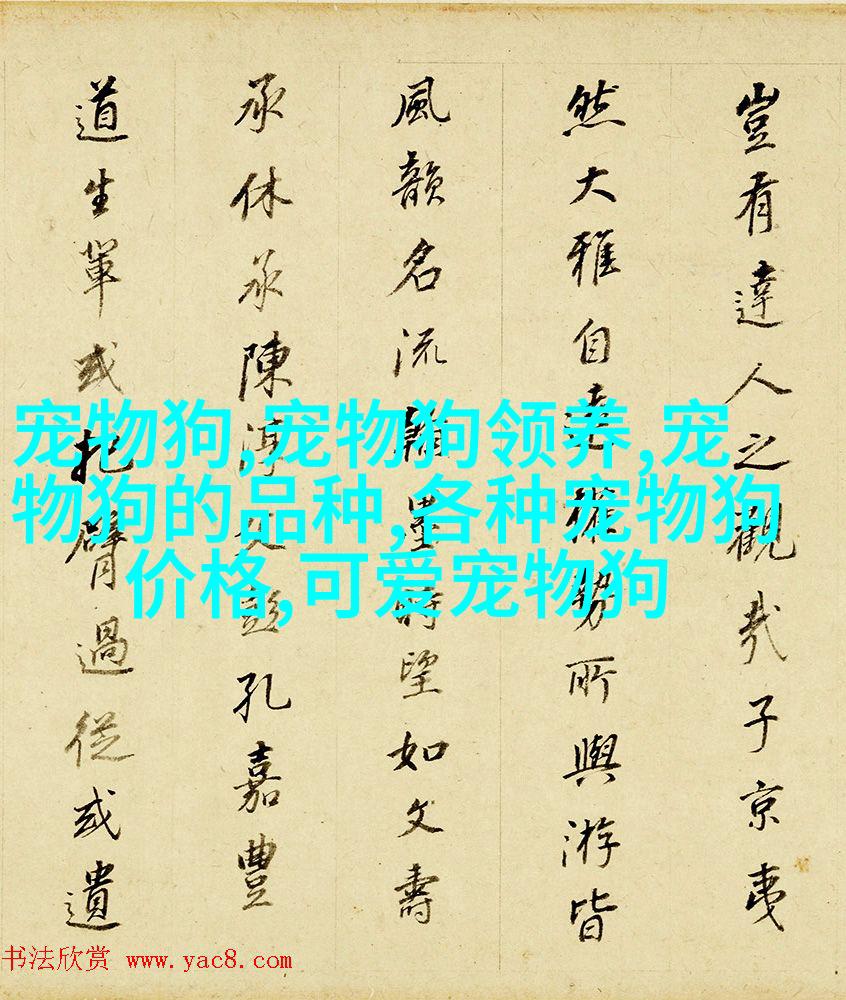 豈有達人之觀哉子京夷
然大雅自遠權勢所與游皆
風韻名流翰墨時望如文壽
承休承陳淳父彭孔嘉豐
道生軰或把臂過從或遺
宠物狗,宠物狗领养,宠
物狗的品种,各种宠物狗
价格,可爱宠物狗
书法欣赏 www.yac8.com